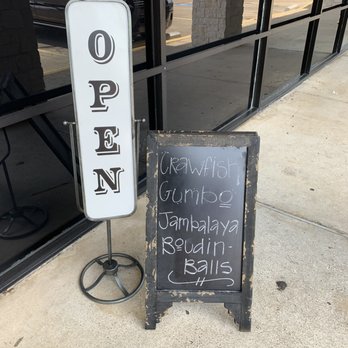 OPEN
Crawfish
Gumbo
Jambalaya
Boudin-
Balls